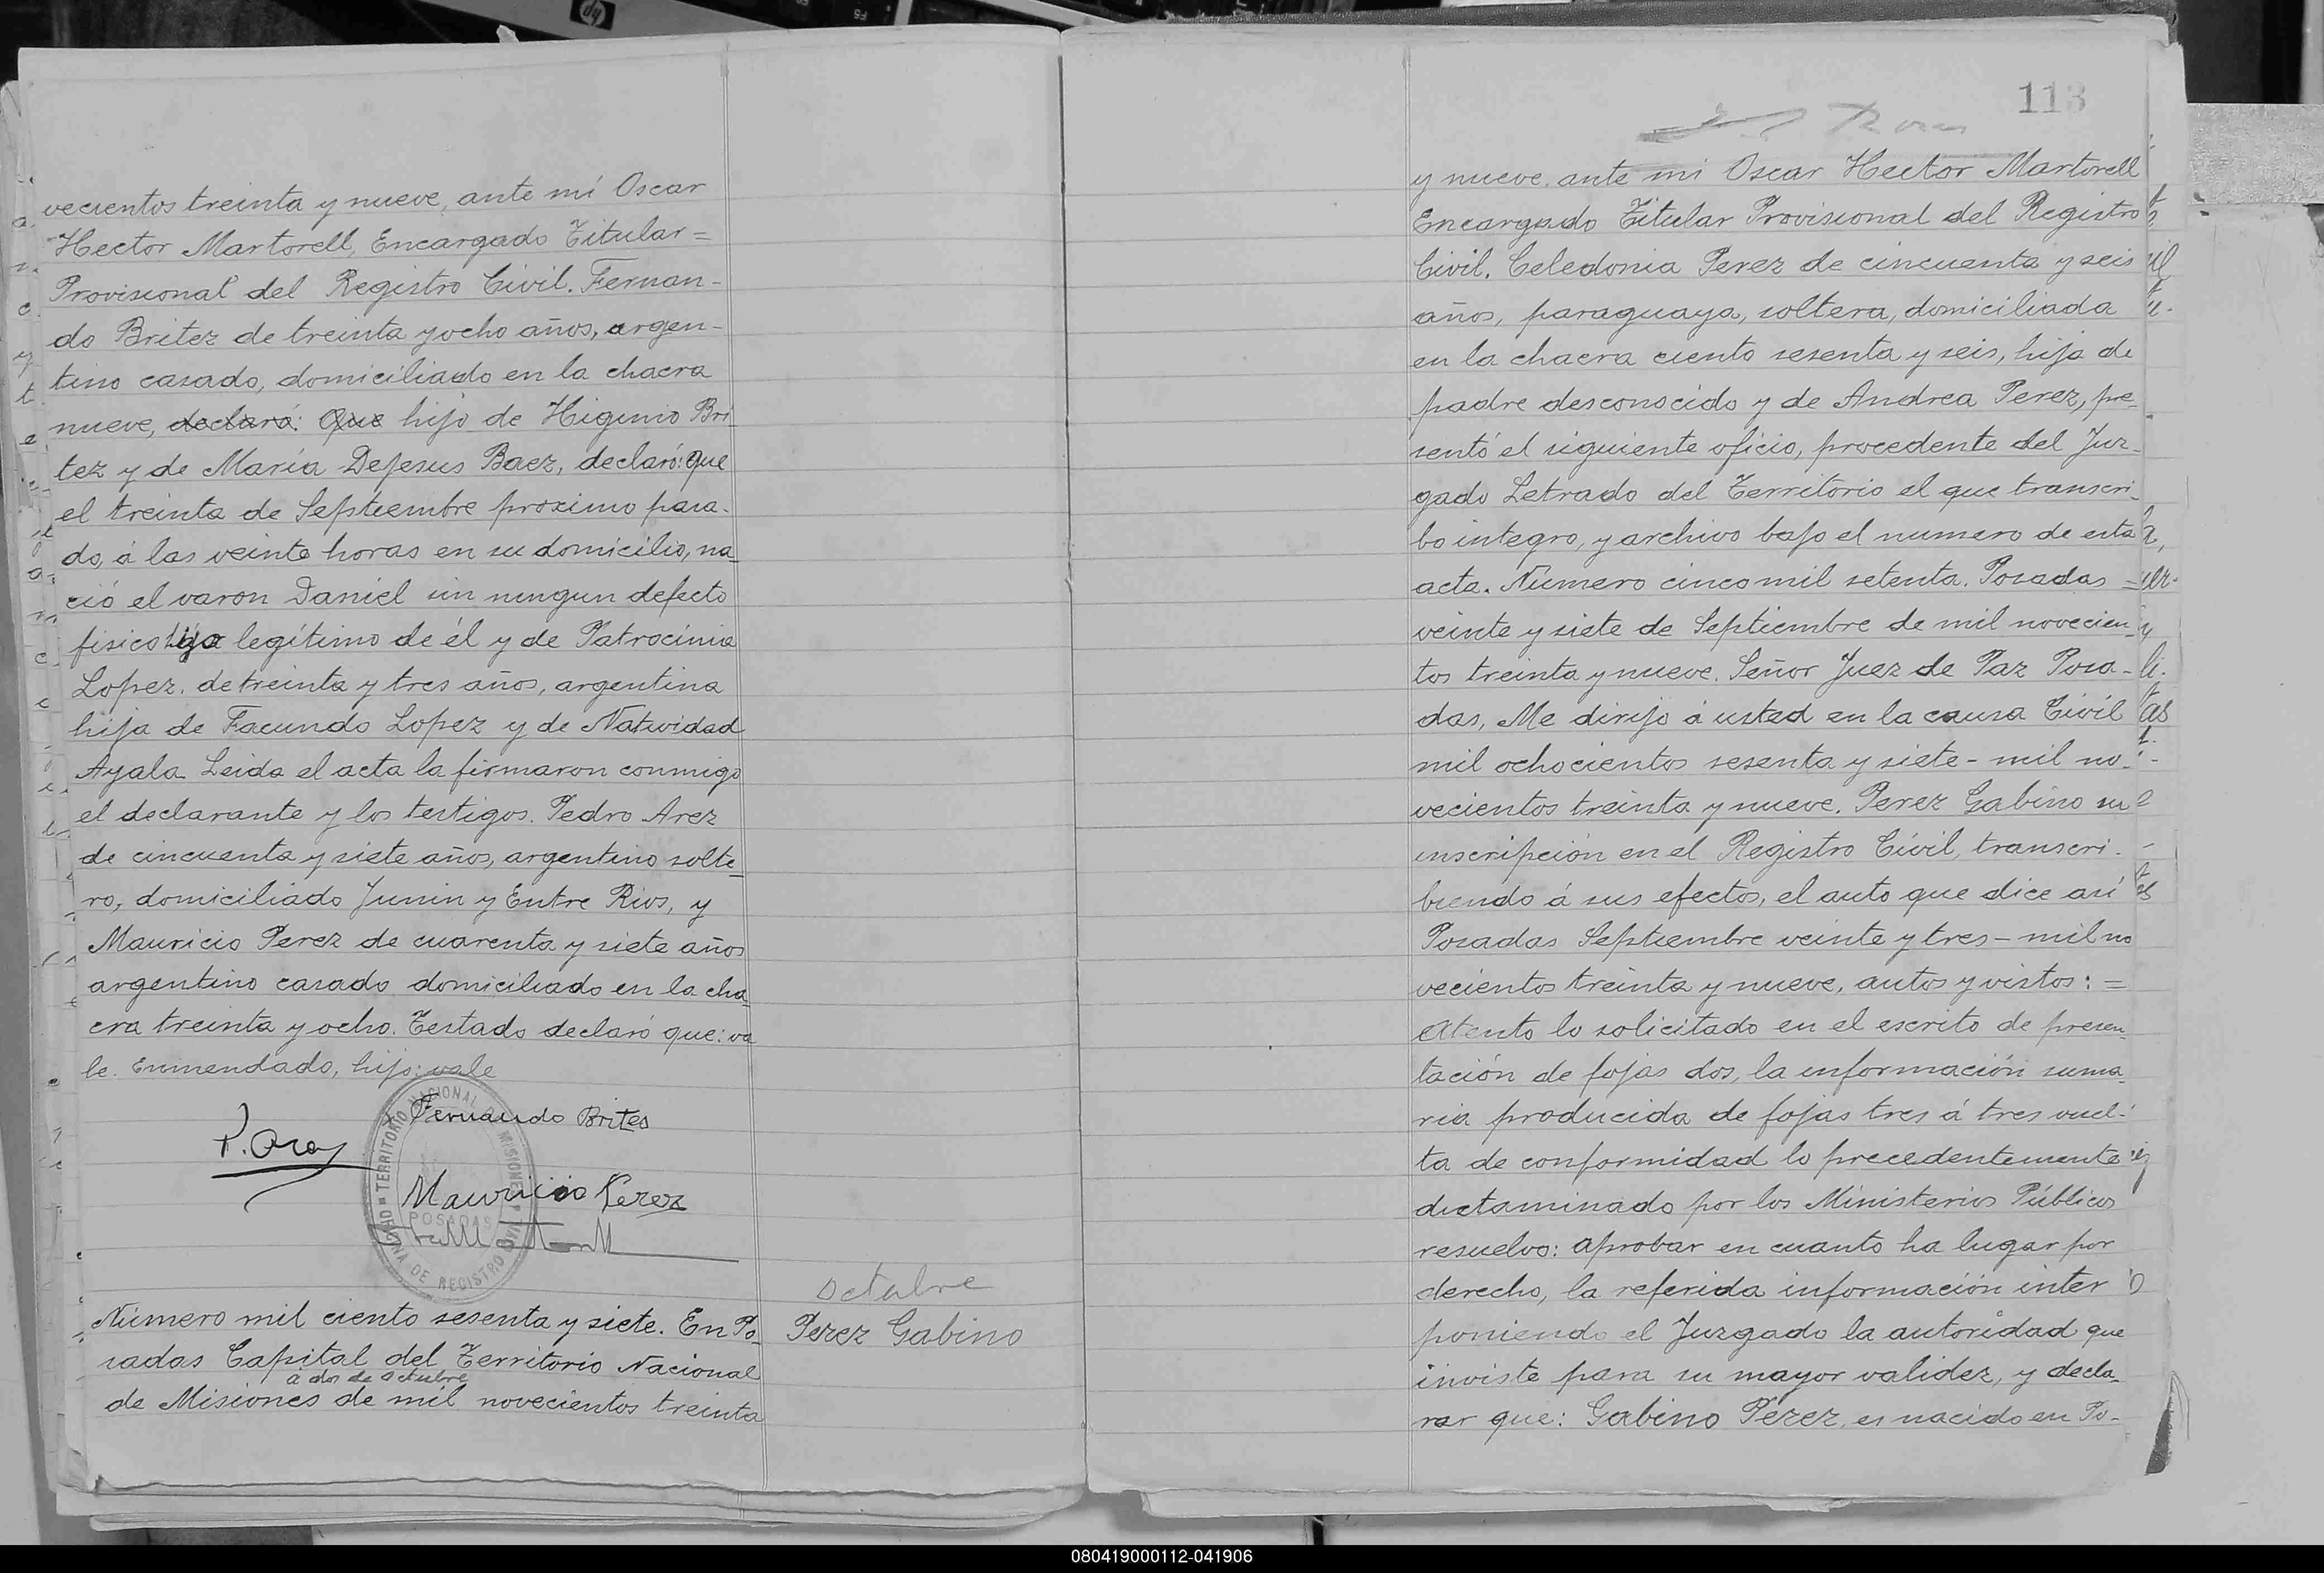 vecientos treinta y nueve, ante mi Oscar
Hector Martorell, Encargado Titular =
Provisional del Registro Civil. Fernan-
do Britez de treinta y ocho años, argen-
tino casado, domiciliado en la chacra
nueve, declaró: Que hijo de Higinio Bri-
tez y de María Dejesus Baez, declaró: que
el treinta de Septiembre proximo pasa-
do, á las veinte horas en su domicilio, na-
ció el varon Daniel sin ningun defecto
fisico hijo legítimo de él y de Patrocinia
Lopez, de treinta y tres años, argentina
hija de Facundo Lopez y de Natividad
Ayala Leida el acta la firmaron conmigo
el declarante y los testigos. Pedro Arez
de cincuenta y siete años, argentino solte-
ro, domiciliado Junin y Entre Rios, y
Mauricio Perez de cuarenta y siete años
argentino casado domiciliado en la cha-
cra treinta y ocho. Testado declaró que: va
le. Enmendado, hijo: vale
Fernando Brites
Mauricio Perez
TERRITORIO NACIONAL DE MISIONES
POSADAS
OFICINA DE REGISTRO CIVIL
Octubre
Número mil ciento sesenta y siete. En Po-
Perez Gabino
sadas Capital del Territorio Nacional
a dos de octubre
de Misiones de mil novecientos treinta
113
y nueve, ante mi Oscar Hector Martorell
Encargado Titular Provisional del Registro
Civil. Celedonia Perez de cincuenta y seis
años, paraguaya, soltera, domiciliada
en la chacra ciento sesenta y seis, hija de
padre desconocido y de Andrea Perez, pre-
sentó el siguiente oficio, procedente del Juz-
gado Letrado del Territorio el que transcri-
bo integro, y archivo bajo el numero de esta
acta. Número cinco mil setenta. Posadas =
veinte y siete de Septiembre de mil novecien-
tos treinta y nueve. Señor Juez de Paz Posa-
das, Me dirijo á usted en la causa Civil
mil ochocientos sesenta y siete - mil no-
vecientos treinta y nueve. Perez Gabino su
inscripción en el Registro Civil, transcri-
biendo á sus efectos, el auto que dice así
Posadas Septiembre veinte y tres - mil no
vecientos treinta y nueve, autos y vistos: =
Atento lo solicitado en el escrito de presen-
tación de fojas dos, la información suma-
ria producida de fojas tres á tres vuel-
ta de conformidad lo precedentemente
dictaminado por los Ministerios Públicos
resuelvo: aprobar en cuanto ha lugar por
derecho, la referida información inter
poniendo el Juzgado la autoridad que
inviste para su mayor validez, y decla-
rar que: Gabino Perez, es nacido en Po-
080419000112-041906